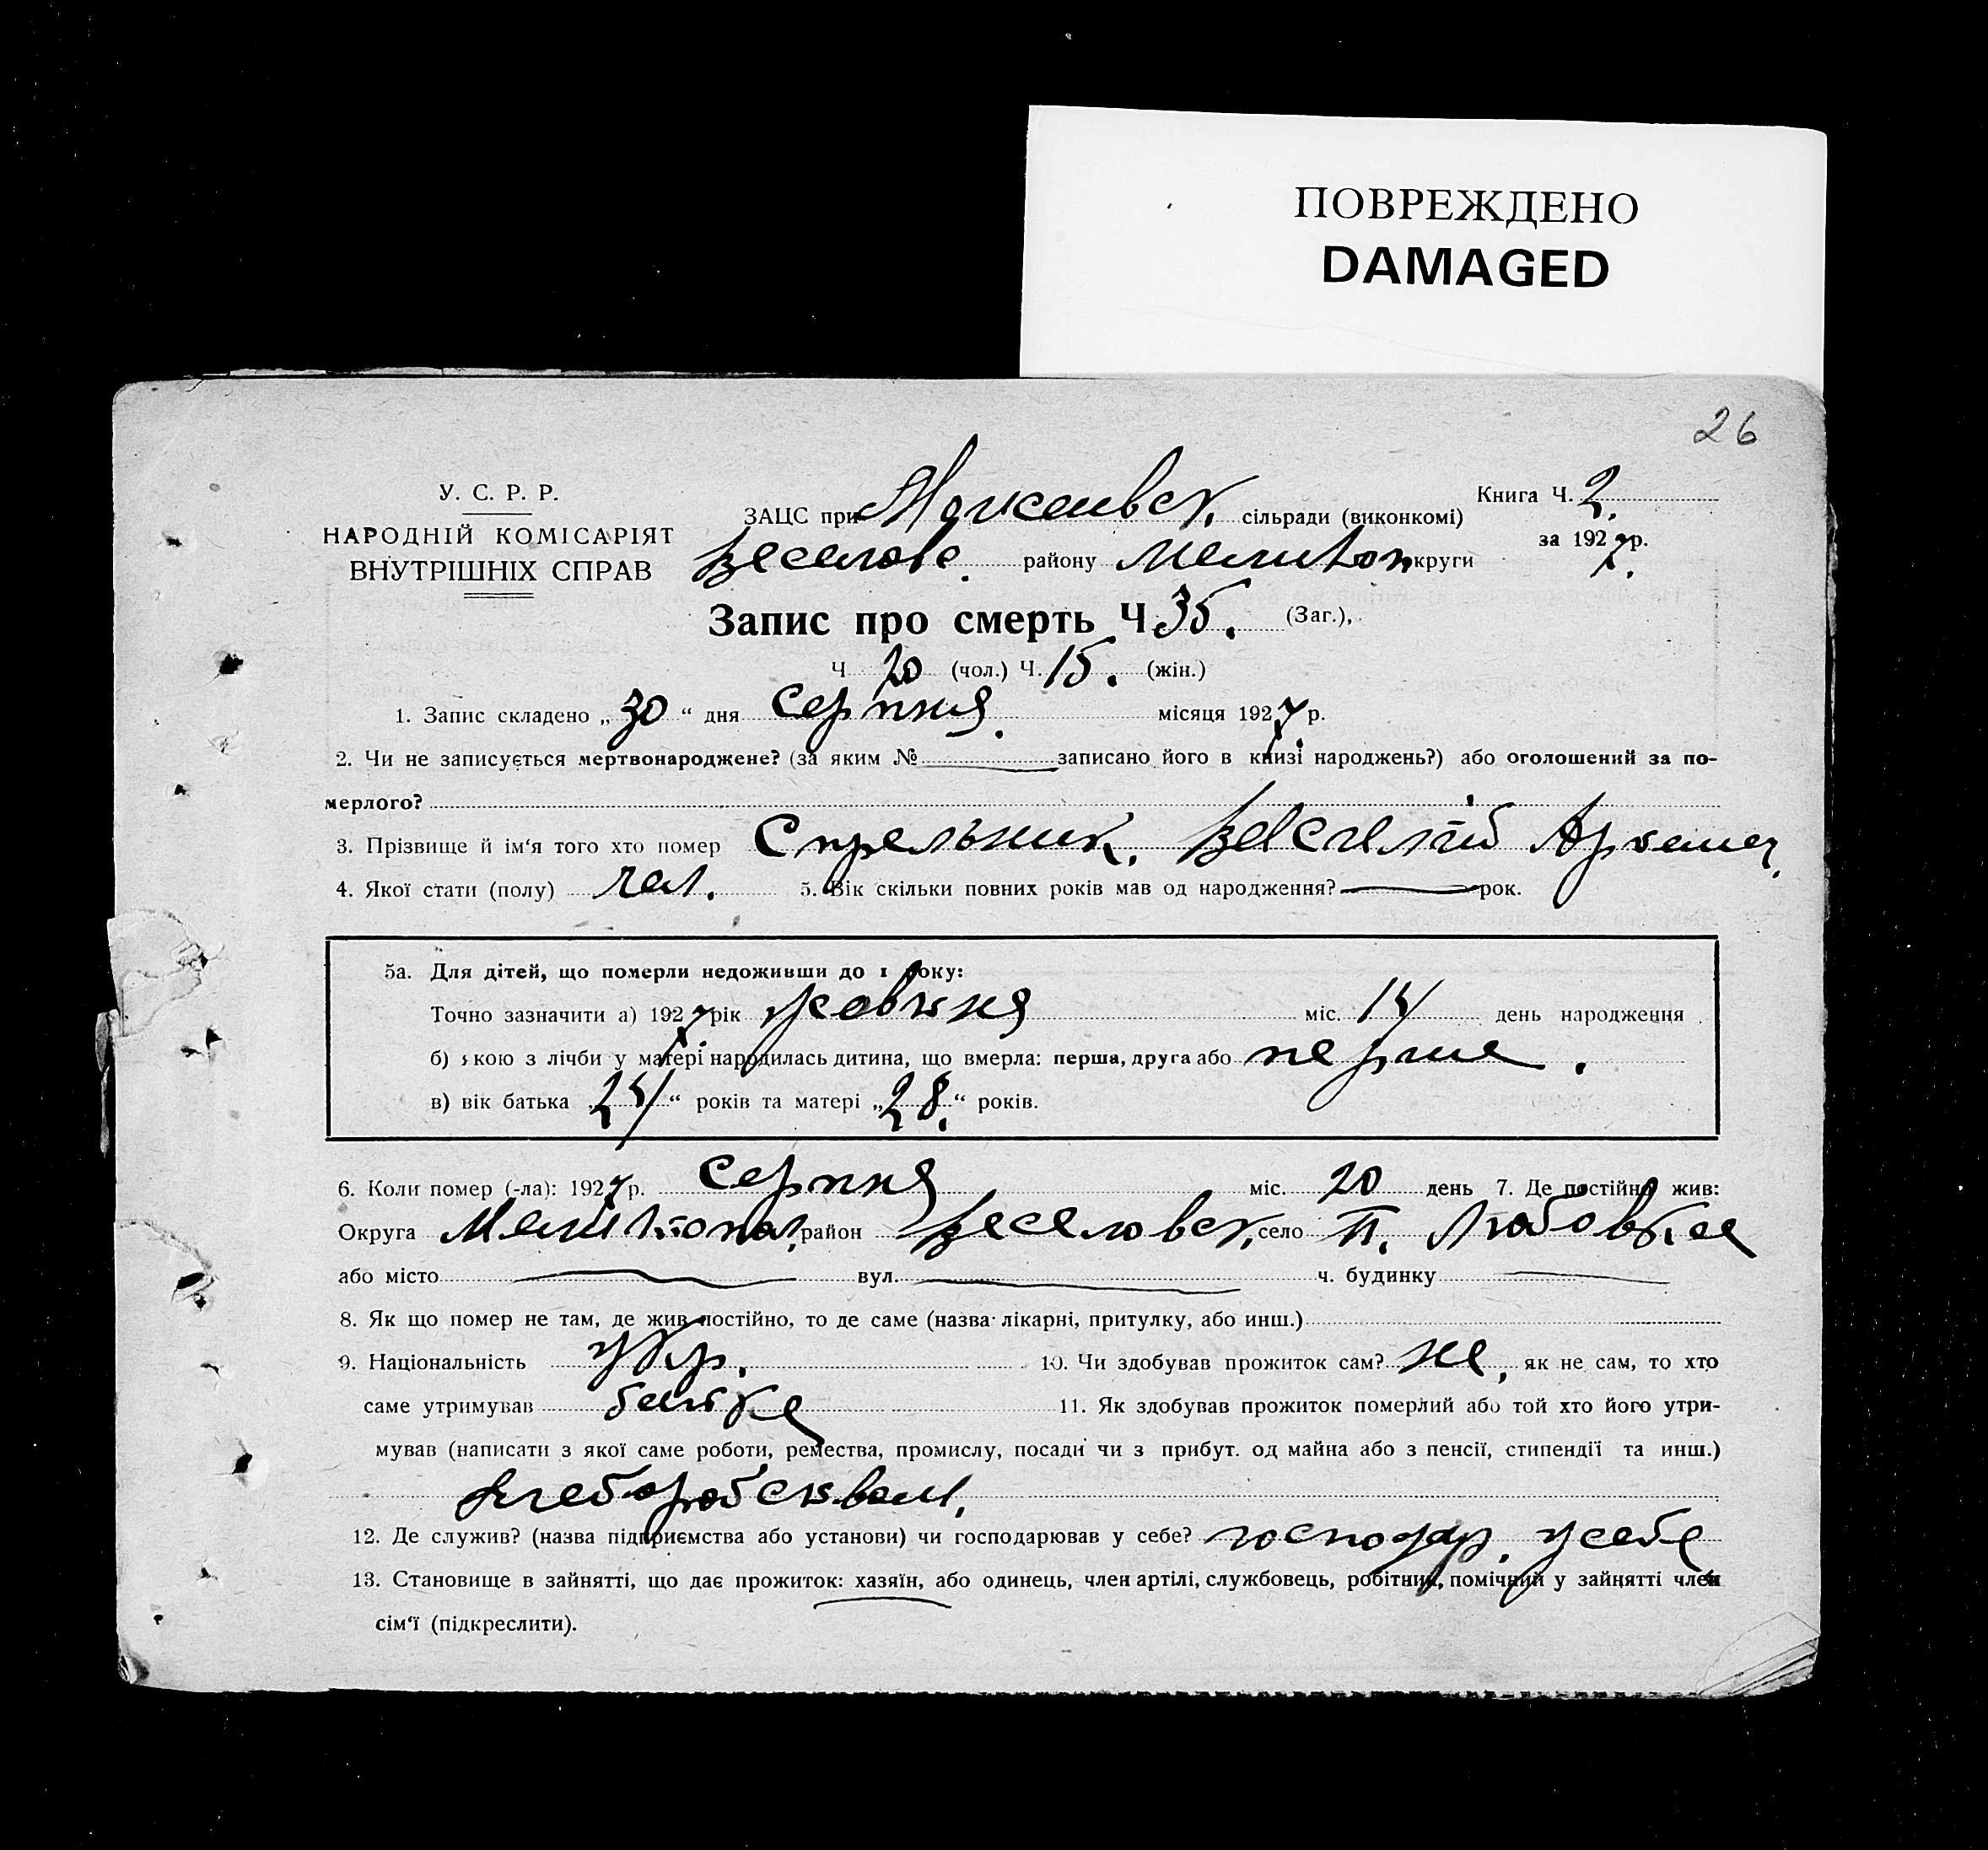 ПОВРЕЖДЕНО
DAMAGED
26
У. С. Р. Р.
НАРОДНІЙ КОМІСАРІЯТ
ВНУТРІШНІХ СПРАВ
ЗАЦС при сільради (виконкомі)
Веселовс. району Мелитоп округи
Книга Ч. 2.
за 1927 р.
Запис про смерть Ч. 35. (Заг.),
Ч 20 (чол.) Ч. 15. (жін.)
1. Запис складено „ 30 “ дня серпня. місяця 1927 р.
2. Чи не записується мертвонароджене? (за яким № записано його в книзі народжень?) або оголошений за по-
мерлого?
3. Прізвище й ім‘я того хто помер Стрельник. Василій
4. Якої стати (полу) чол. 5. Вік скільки повних років мав од народження? рок.
5а. Для дітей, що померли недоживши до 1 року:
Точно зазначити а) 1927 рік міс. 14 день народження
б) якою з лічби у матері народилась дитина, що вмерла: перша, друга або перша.
в) вік батька „ 24 “ років та матері „ 28. “ років.
6. Коли помер (-ла): 1927 р. серпня міс. 20 день 7. Де постійно жив:
Округа Мелітопол. район Веселовск. село П. Любовка
або місто вул. ч. будинку
8. Як що помер не там, де жив постійно, то де саме (назва лікарні, притулку, або инш.)
9. Національність укр. 10. Чи здобував прожиток сам? не, як не сам, то хто
саме утримував батько 11. Як здобував прожиток померлий або той хто його утри-
мував (написати з якої саме роботи, ремества, промислу, посади чи з прибут. од майна або з пенсії, стипендії та инш.)
хлеборобством.
12. Де служив? (назва підприємства або установи) чи господарював у себе? господар. у себе
13. Становище в зайнятті, що дає прожиток: хазяїн, або одинець, член артілі, службовець, робітник, помічний у зайнятті член
сім‘ї (підкреслити).